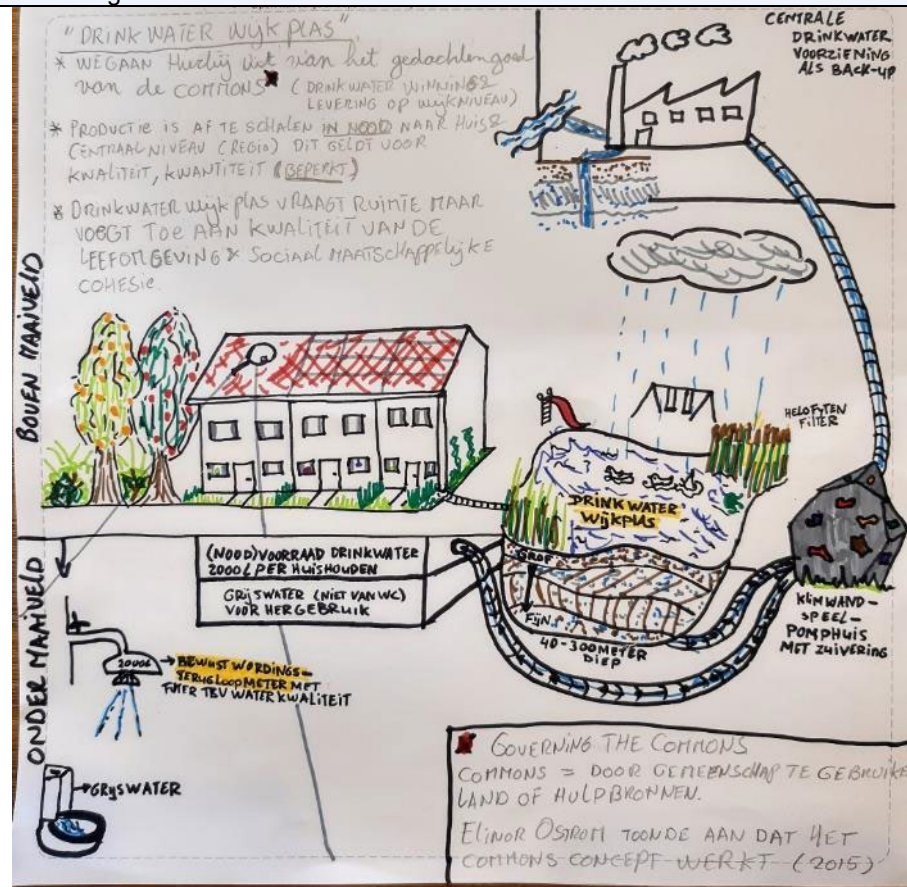 "DRINKWATER WIJKPLAS"
* WE GAAN Hierbij uit van het gedachtengoed
van de COMMONS* (DRINKWATER WINNING &
LEVERING OP WIJKNIVEAU)
* PRODUCTIE IS AF TE SCHALEN IN NOOD NAAR HUIS &
CENTRAAL NIVEAU (REGIO) DIT GELDT VOOR
KWALITEIT, KWANTITEIT (BEPERKT)
* DRINKWATER WIJKPLAS VRAAGT RUIMTE MAAR
VOEGT TOE AAN KWALITEIT VAN DE
LEEFOMGEVING & SOCIAAL MAATSCHAPPELIJKE
COHESIE.
CENTRALE
DRINKWATER
VOORZIENING
ALS BACK-UP
BOVEN MAAIVELD
HELOFYTEN
FILTER
DRINKWATER
WIJKPLAS
GROF
FIJN
40-300 METER
DIEP
KLIMWAND-
SPEEL-
POMPHUIS
MET ZUIVERING
(NOOD)VOORRAAD DRINKWATER
2000L PER HUISHOUDEN
GRIJSWATER (NIET VAN WC)
VOOR HERGEBRUIK
ONDER MAAIVELD
2000L
BEWUSTWORDINGS-
TERUGLOOPMETER MET
FILTER TBV WATER KWALITEIT
GRIJSWATER
* GOVERNING THE COMMONS
COMMONS = DOOR GEMEENSCHAP TE GEBRUIKE
LAND OF HULPBRONNEN.
ELINOR OSTROM TOONDE AAN DAT HET
COMMONS CONCEPT WERKT (2015)